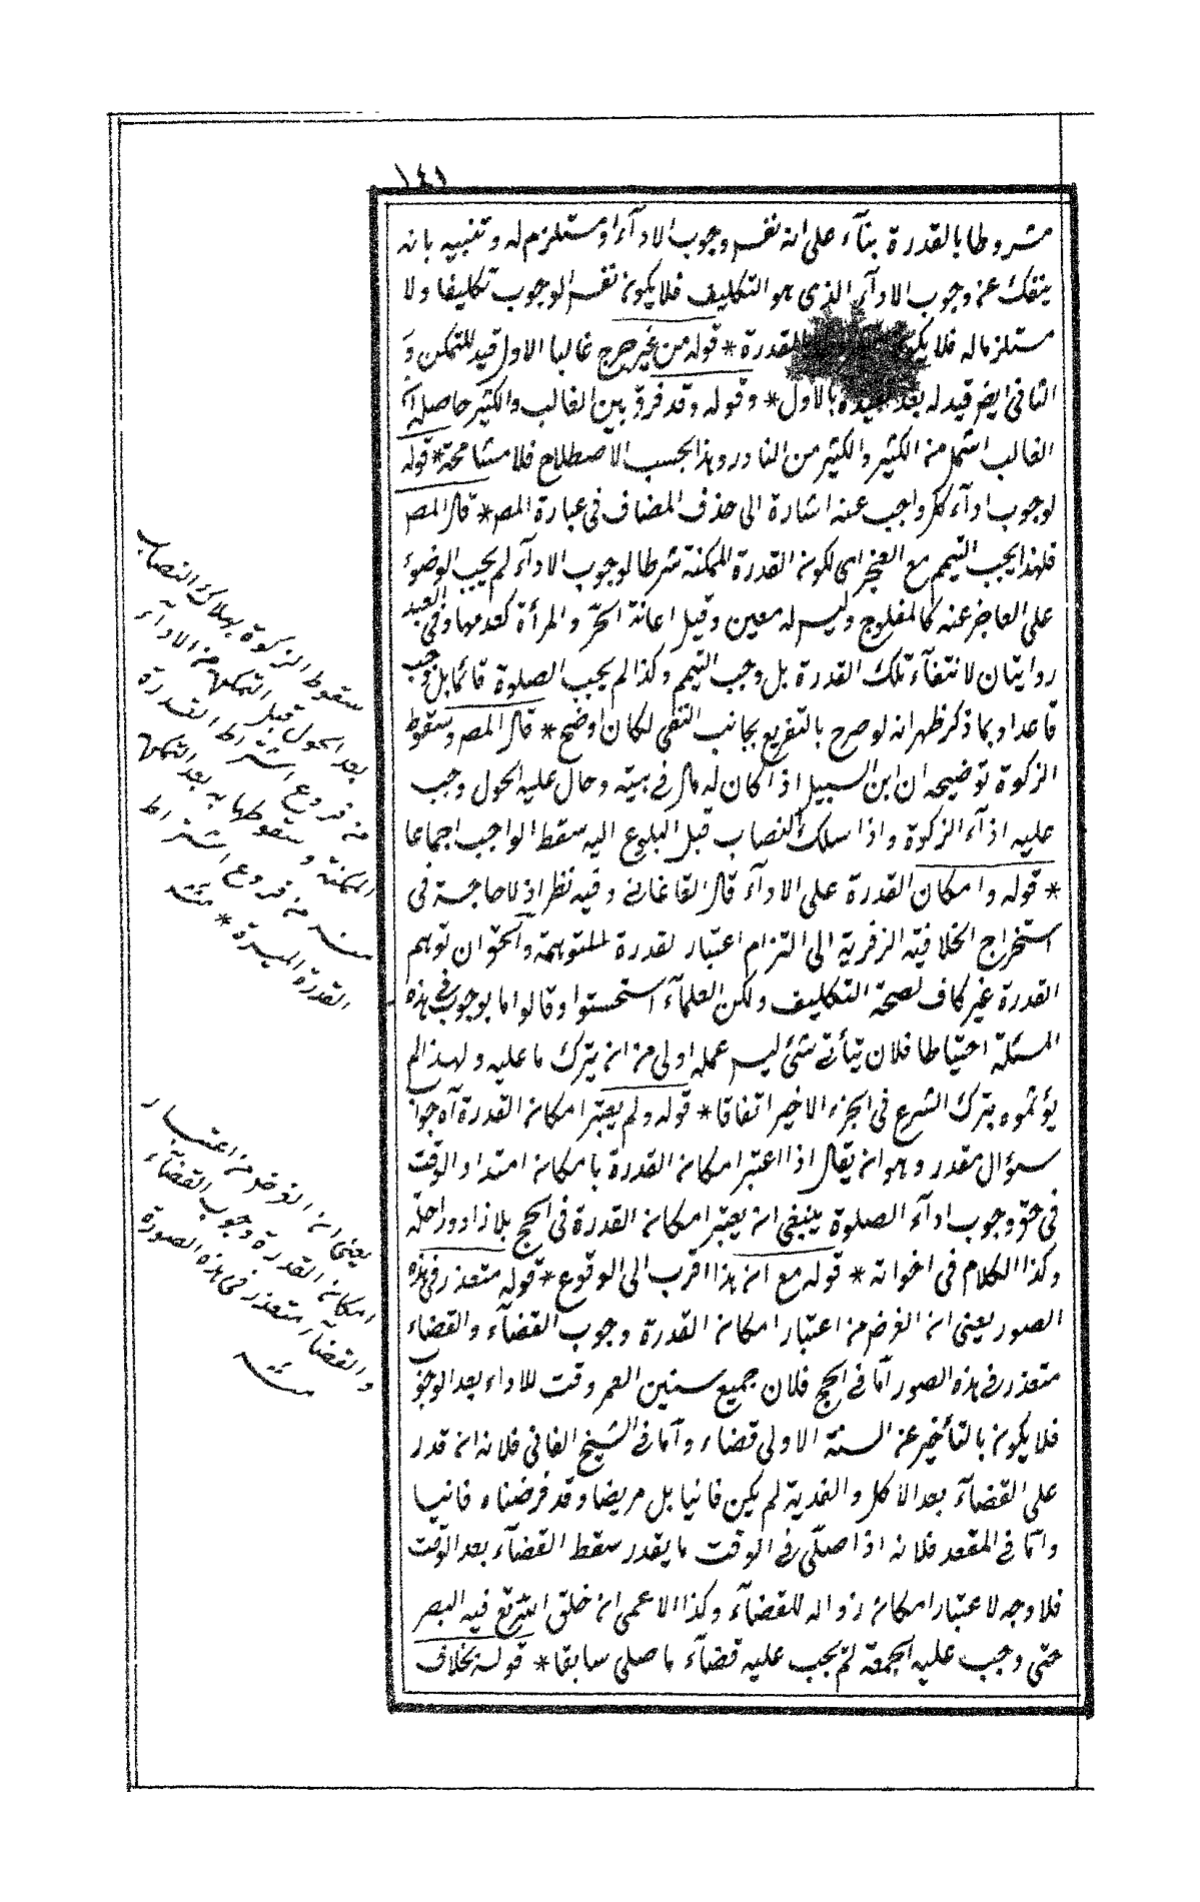 ١٤١
مشروطا بالقدرة بنآء على انه نفس وجوب الادآء او مستلزم له وتنبيه بانه
ينفك عن وجوب الادآء الذى هو التكليف فلا يكون نفس الوجوب تكليفا ولا
مستلزما له فلا يكون للقدرة * قوله من غير حرج غالبا الاول قيد للتمكن و
الثانى ايضا قيد له بعد تقييده بالاول * وقوله وقد فرق بين الغالب والكثير حاصله ان
الغالب اشمل من الكثير والكثير من النادر وهذا بحسب الاصطلاح فلا مشاححة * قوله
لوجوب ادآء كل واجب عنه اشارة الى حذف المضاف فى عبارة المص * قال المص
فلهذا يجب التيمم مع العجز اى لكون القدرة الممكنة شرطا لوجوب الادآء لم يجب الوضوء
على العاجز عنه كالمفلوج وليس له معين وقيل اعانة الحرّ والمرأة كعدمها وفى العبد
روايتان لانتفآء تلك القدرة بل وجب التيمم وكذا لم يجب الصلوة قائما بل وجب
قاعدا وبما ذكر ظهر انه لو صرح بالتفريع بجانب النفى لكان اوضح * قال المص وسقوط
الزكوة توضيحه ان ابن السبيل اذا كان له مال فى بيته وحال عليه الحول وجب
عليه ادآء الزكوة واذا سلك النصاب قبل البلوغ اليه سقط الواجب اجماعا
* قوله وامكان القدرة على الادآء قال القاغانى وفيه نظر اذ لا حاجة فى
استخراج الخلافية الزفرية الى التزام اعتبار لقدرة المتوهمة والحق ان توهم
القدرة غير كاف لصحة التكليف ولكن العلمآء استحسنوا وقالوا ما بوجوب فى هذه
المسئلة احتياطا فلان يتأتى شئ ليس عمله اولى من ان يترك ما عليه ولهذا لم
يؤثموه بترك الشرع فى الجزء الاخير اتفاقا * قوله ولم يعتبر امكان القدرة آه جواب
سؤال مقدر وهو ان يقال اذا اعتبر امكان القدرة بامكان امتداد الوقت
فى حق وجوب ادآء الصلوة ينبغى ان يعتبر امكان القدرة فى الحج بلا زاد وراحلة
وكذا الكلام فى اخواته * قوله مع ان هذا اقرب الى الوقوع * قوله متعذر فى هذه
الصور يعنى ان الغرض من اعتبار امكان القدرة وجوب القضآء والقضاء
متعذر فى هذه الصور امّا فى الحج فلان جميع سنين العمر وقت للاداء بعد الوجوب
فلا يكون بالتأخير عن السنة الاولى قضاء وامّا فى الشيخ الفانى فلانه ان قدر
على القضآء بعد الاكل والفدية لم يكن فانيا بل مريضا وقد فرضناه فانيا
وامّا فى المقعد فلانه اذا صلّى فى الوقت ما يقدر سقط القضآء بعد الوقت
فلا وجه لاعتبار امكان زواله للقضآء وكذا الاعمى ان خلق فيه البصر
حتى وجب عليه الجمعة لم يجب عليه قضآء ما صلى سابقا * قوله بخلاف
سقوط الزكوة بهلاك النصاب
بعد الحول قبل التمكن من الادآء
من فروع اشتراط القدرة
الممكنة وسقوطها به بعد التمكن
منه من فروع اشتراط
القدرة الميسرة * منه
يعنى ان الغرض من اعتبار
امكان القدرة وجوب القضآء
والقضآء متعذر فى هذه الصورة
منه